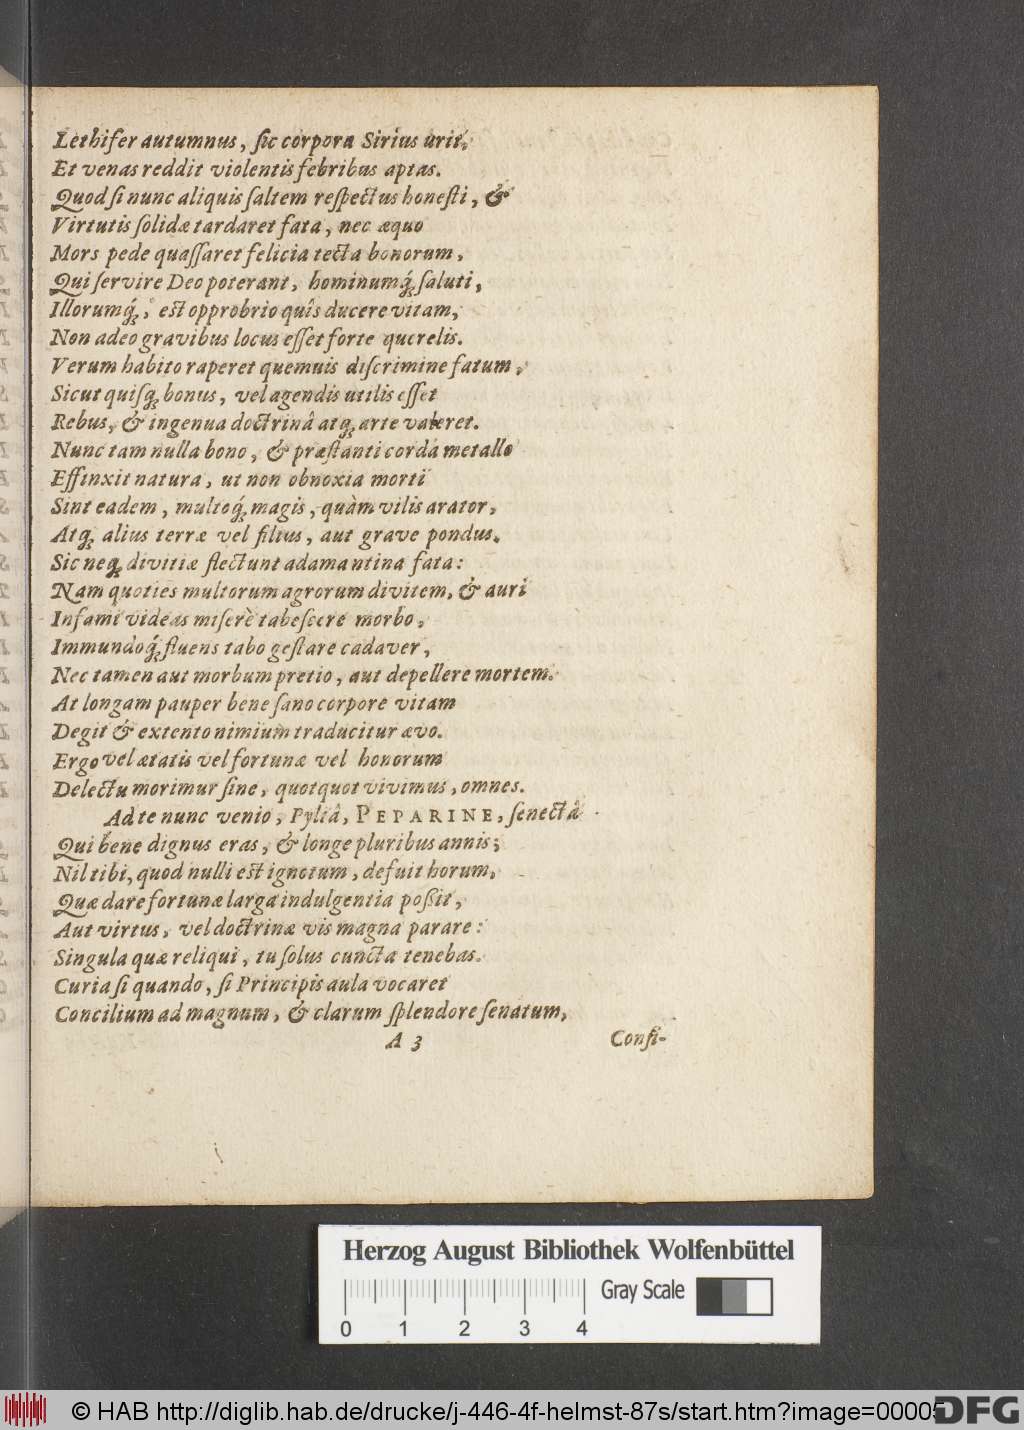 Lethifer autumnus, ſic corpora Sirius urit,
Et venas reddit violentis febribus aptas.
Quod ſi nunc aliquis ſaltem reſpectus honeſti, &
Virtutis ſolidæ tardaret fata, nec æquo
Mors pede quaſſaret felicia tecta bonorum,
Qui ſervire Deo poterant, hominumq́; ſaluti,
Illorumq́;, est opprobrio quîs ducere vitam,
Non adeo gravibus locus eſſet forte querelis.
Verum habito raperet quemuis diſcrimine fatum,
Sicut quiſq; bonus, vel agendis utilis eſſet
Rebus, & ingenua doctrinâ atq; arte valeret.
Nunc tam nulla bono, & præſtanti corda metallo
Effinxit natura, ut non obnoxia morti
Sint eadem, multoq́; magis, quàm vilis arator,
Atq; alius terræ vel filius, aut grave pondus.
Sic neq; divitiæ flectunt adamantina fata:
Nam quoties multorum agrorum divitem, & auri
Infami videas miſerè tabeſcere morbo,
Immundoq́; fluens tabo geſtare cadaver,
Nec tamen aut morbum pretio, aut depellere mortem.
At longam pauper bene ſano corpore vitam
Degit & extento nimium traducitur ævo.
Ergo vel ætatis vel fortunæ vel honorum
Delectu morimur ſine, quotquot vivimus, omnes.
Ad te nunc venio, Pyliâ, PEPARINE, ſenectâ
Qui bene dignus eras, & longe pluribus annis;
Nil tibi, quod nulli est ignotum, defuit horum,
Quæ dare fortunæ larga indulgentia poßit,
Aut virtus, vel doctrinæ vis magna parare:
Singula quæ reliqui, tu ſolus cuncta tenebas.
Curia ſi quando, ſi Principis aula vocaret
Concilium ad magnum, & clarum ſplendore ſenatum,
A 3 Conſi-
Herzog August Bibliothek Wolfenbüttel
Gray Scale
0 1 2 3 4
© HAB http://diglib.hab.de/drucke/j-446-4f-helmst-87s/start.htm?image=00005
DFG